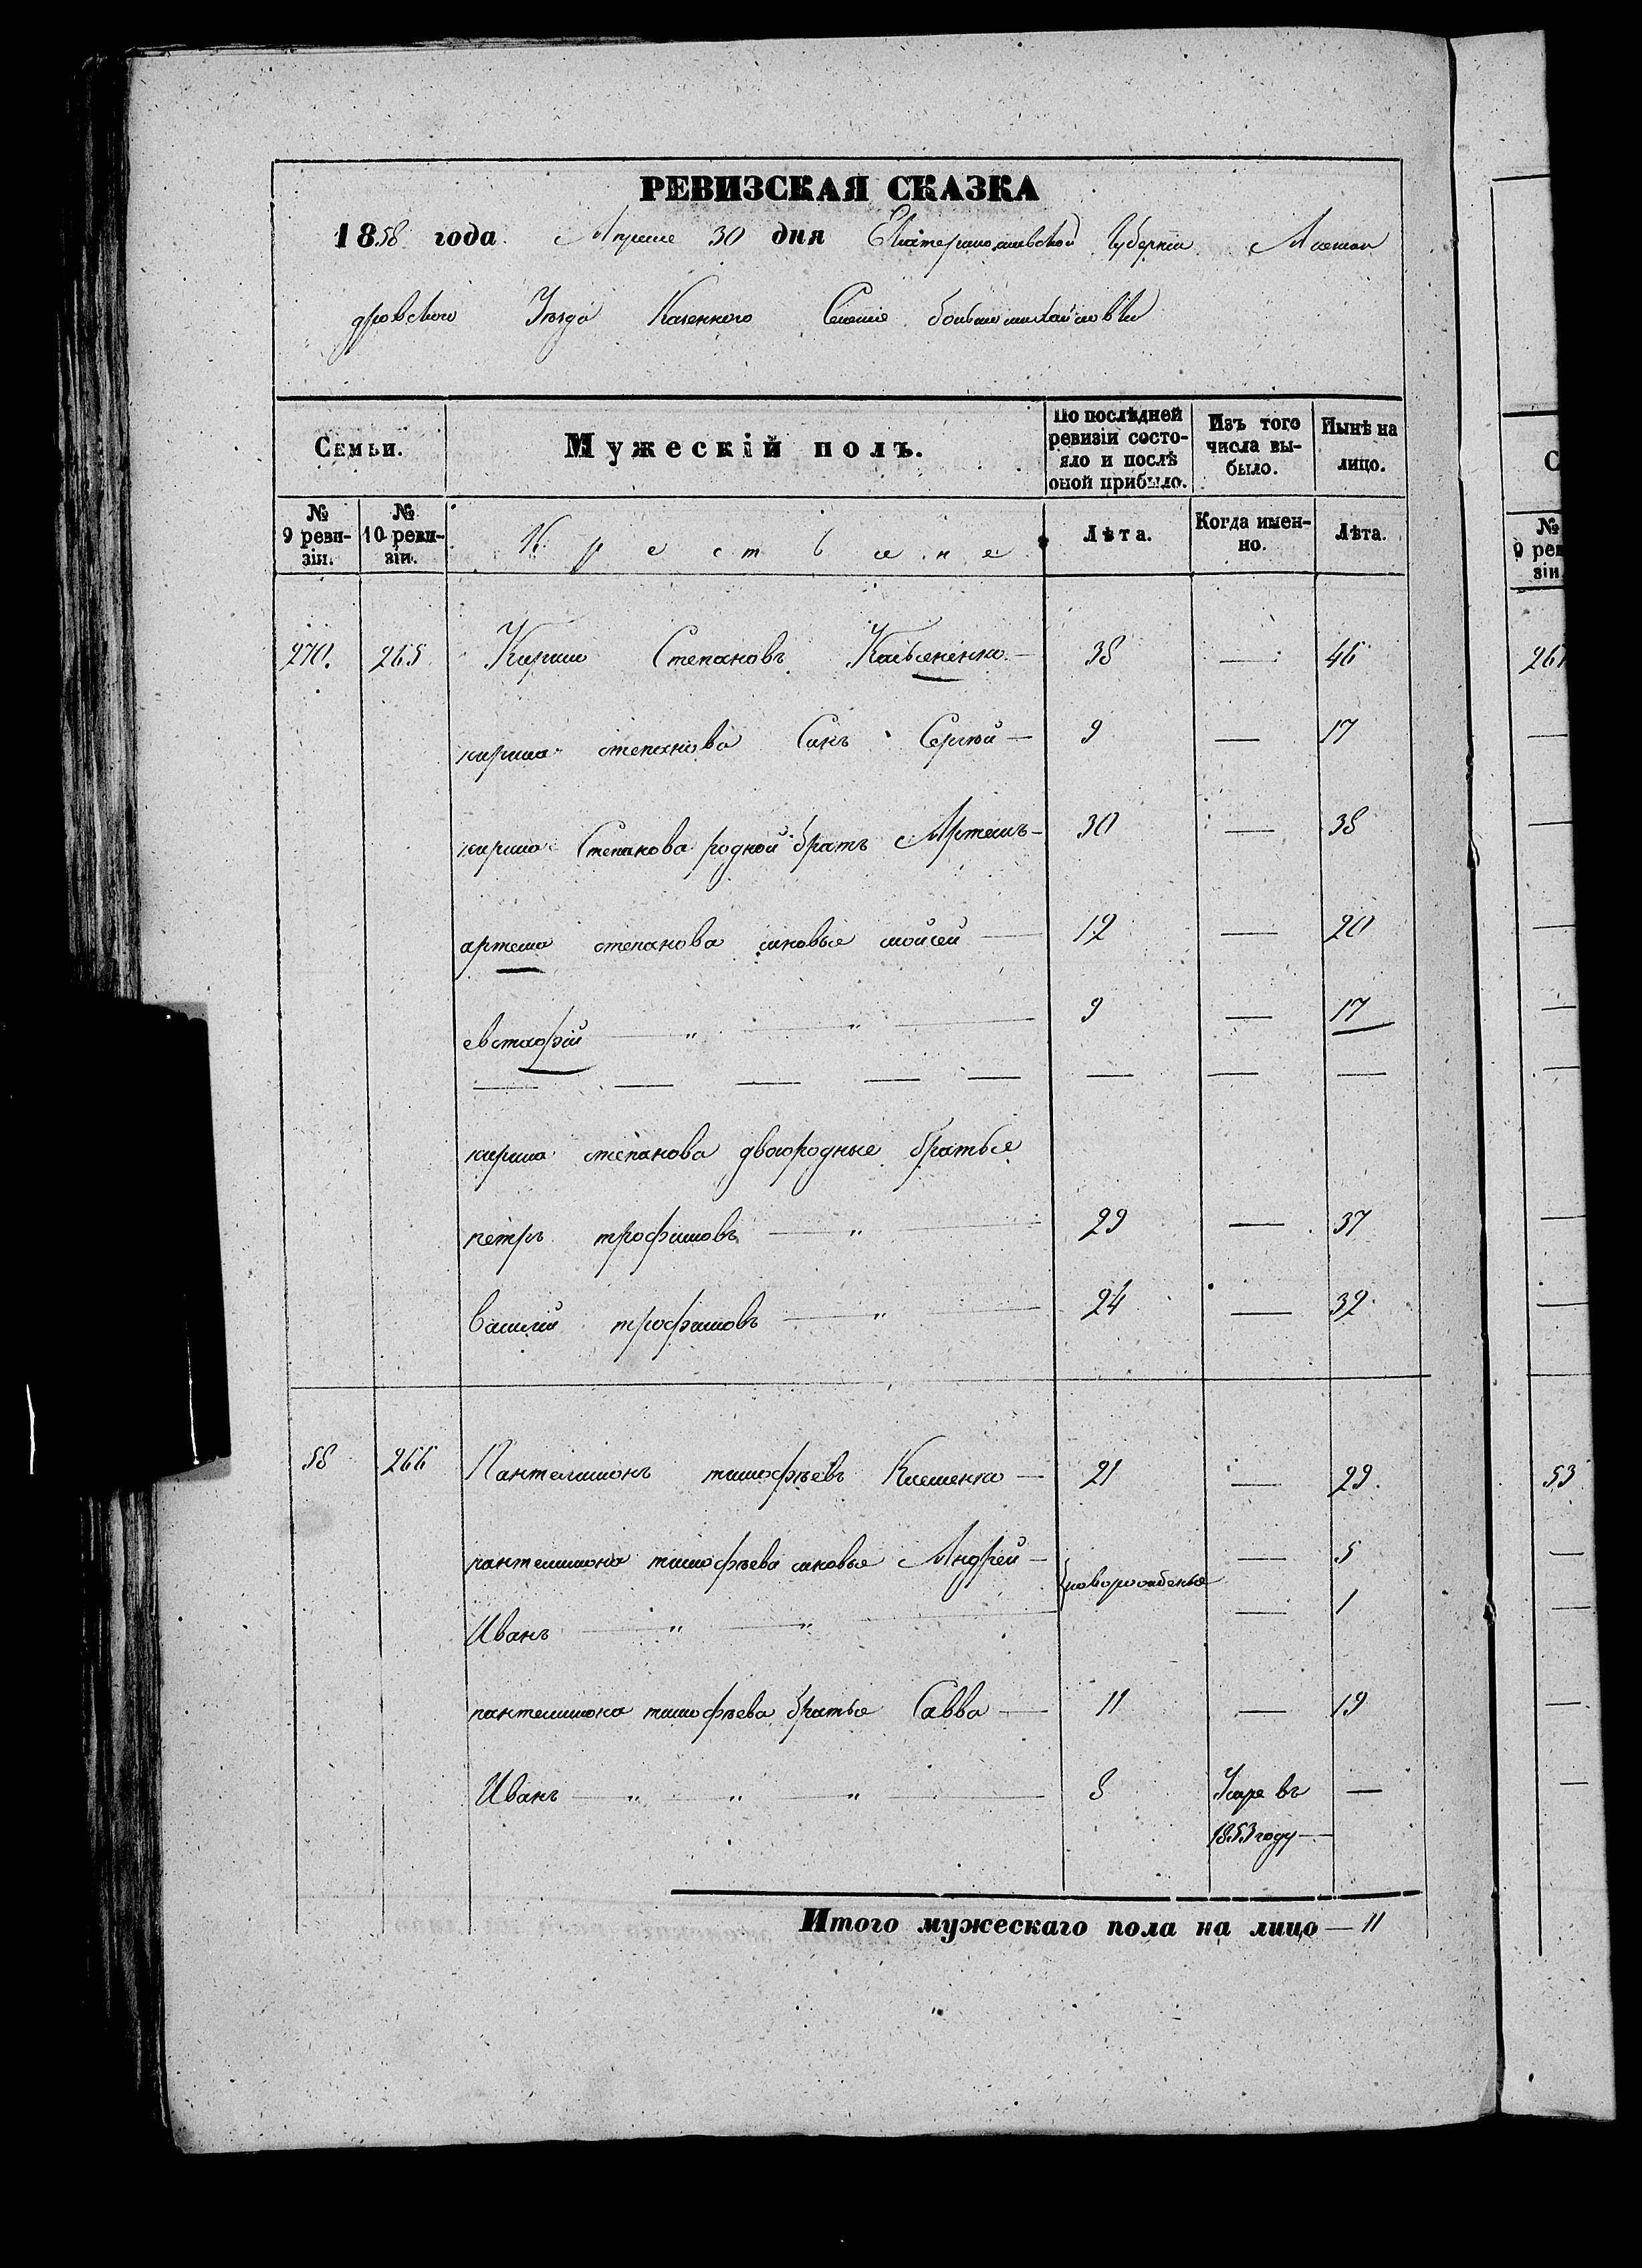 РЕВИЗСКАЯ СКАЗКА
1858 года Апреля 30 дня Екатеринославской Губерніи Алексан
дровского Уѣзда Казенного Селенія большемихайловки
Семьи. Мужескій полъ. По послѣдней ревизіи состояло и послѣ оной прибыло. Изъ того числа выбыло. Нынѣ на лицо.
№ 9 ревизіи. № 10 ревизіи. Крестьяне Лѣта. Когда именно. Лѣта.
270. 265 Кирило Степановъ — 38 — 46
кирила степанова Синъ Сергѣй — 9 — 17
кирила Степанова родной братъ Артемъ — 30 — 38
артема степанова сыновье мойсей — 12 — 20
евстафій — " — " — 9 — 17
— — — — — — — —
кирила степанова двоюродные братье
петръ трофимовъ — " — 29 — 37
василій трофимовъ — " — 24 — 32
58 266 Пантелимонъ тимофѣевъ Клименко — 21 — 29.
пантелимона тимофѣева сыновье Андрей — новорожденые — 5
Иванъ — " — " — — 1
пантелимона тимофѣева братье Савва — 11 — 19
Иванъ — " — " — " — 8 Умре въ —
1853 году —
Итого мужескаго пола на лицо — 11
С
№
9 рев
зіи
53